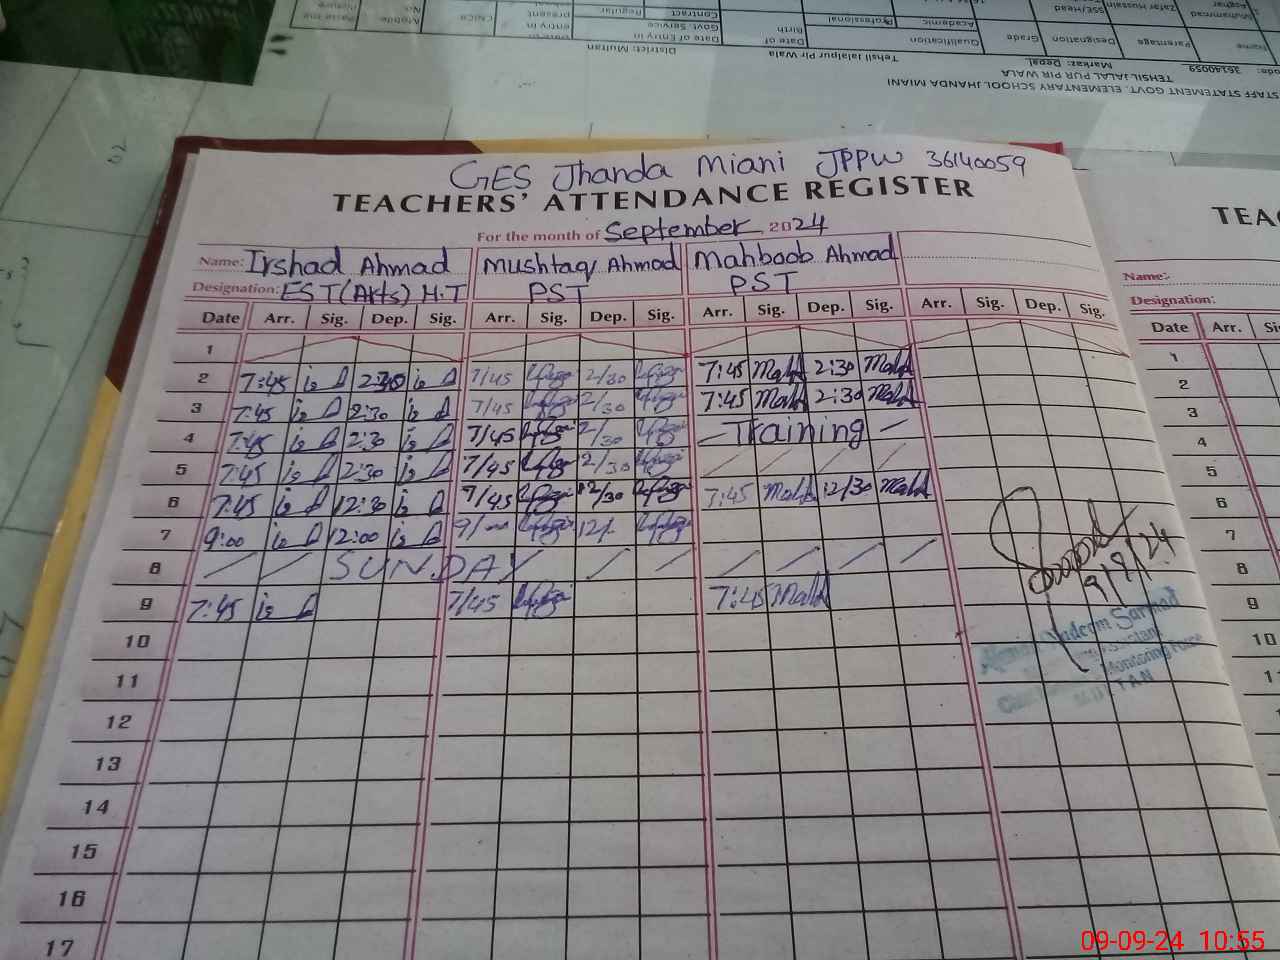 STAFF STATEMENT GOVT. ELEMENTARY SCHOOL JHANDA MIANI
TEHSIL JALAL PUR PIR WALA
36140059 Markaz: Depal
Tehsil Jalalpur Pir Wala District: Multan
Name Parentage Designation Grade Qualification Date of Birth Date of Entry in Govt. Service
Academic Professional Regular Contract CNIC# Mobile No
Muhammad Asghar Zafar Hussain SSE/Head
GES Jhanda Miani JPPW 36140059
TEACHERS' ATTENDANCE REGISTER
For the month of September 2024
Name: Irshad Ahmad Mushtaq Ahmad Mahboob Ahmad
Designation: EST (Arts) H.T PST PST
Date Arr. Sig. Dep. Sig. Arr. Sig. Dep. Sig. Arr. Sig. Dep. Sig. Arr. Sig. Dep. Sig.
1
2 7:45 2:30 7/45 2/30 7:45 2:30
3 7:45 2:30 7/45 2/30 7:45 2:30
4 7:45 2:30 7/45 2/30 – Training –
5 7:45 2:30 7/45 2/30
6 7:45 12:30 7/45 12/30 7:45 12/30
7 9:00 12:00 9/ 12/
8 SUNDAY
9 7:45 7/45 7:45
10
11
12
13
14
15
16
17
9/9/24
Nadeem Sarmad
Assistant
Monitoring Force
MULTAN
Name:
Designation:
Date Arr.
1
2
3
4
5
6
7
8
9
10
09-09-24 10:55